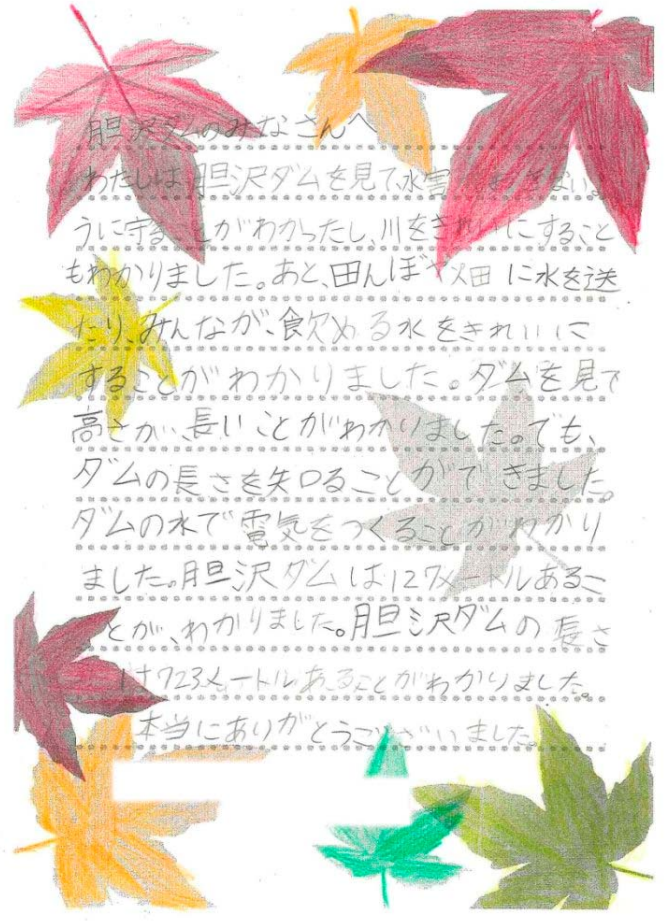 胆沢ダムのみなさんへ
わたしは、胆沢ダムを見て、水害 ないよ
うに守る がわかったし、川をきれいにすること
もわかりました。あと、田んぼや畑に水を送
たり、みんなが、飲める水をきれいに
することがわかりました。ダムを見て
高さが、長いことがわかりました。でも、
ダムの長さを知ることができました。
ダムの水で電気をつくることがわかり
ました。胆沢ダムは127メートルあるこ
とが、わかりました。胆沢ダムの長さ
は723メートルあることがわかりました。
本当にありがとうございました。